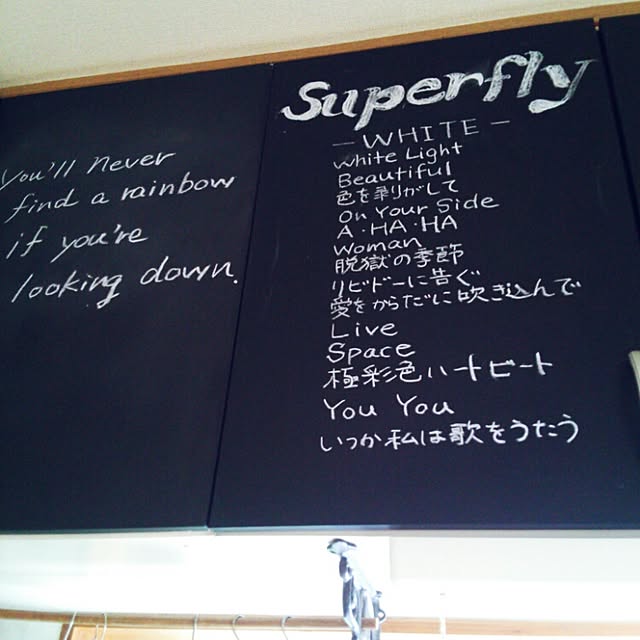 you'll never
find a rainbow
if you're
looking down.
Superfly
- WHITE -
White Light
Beautiful
色を剥がして
On Your Side
A・HA・HA
Woman
脱獄の季節
リビドーに告ぐ
愛をからだに吹き込んで
Live
Space
極彩色ハートビート
You You
いつか私は歌をうたう